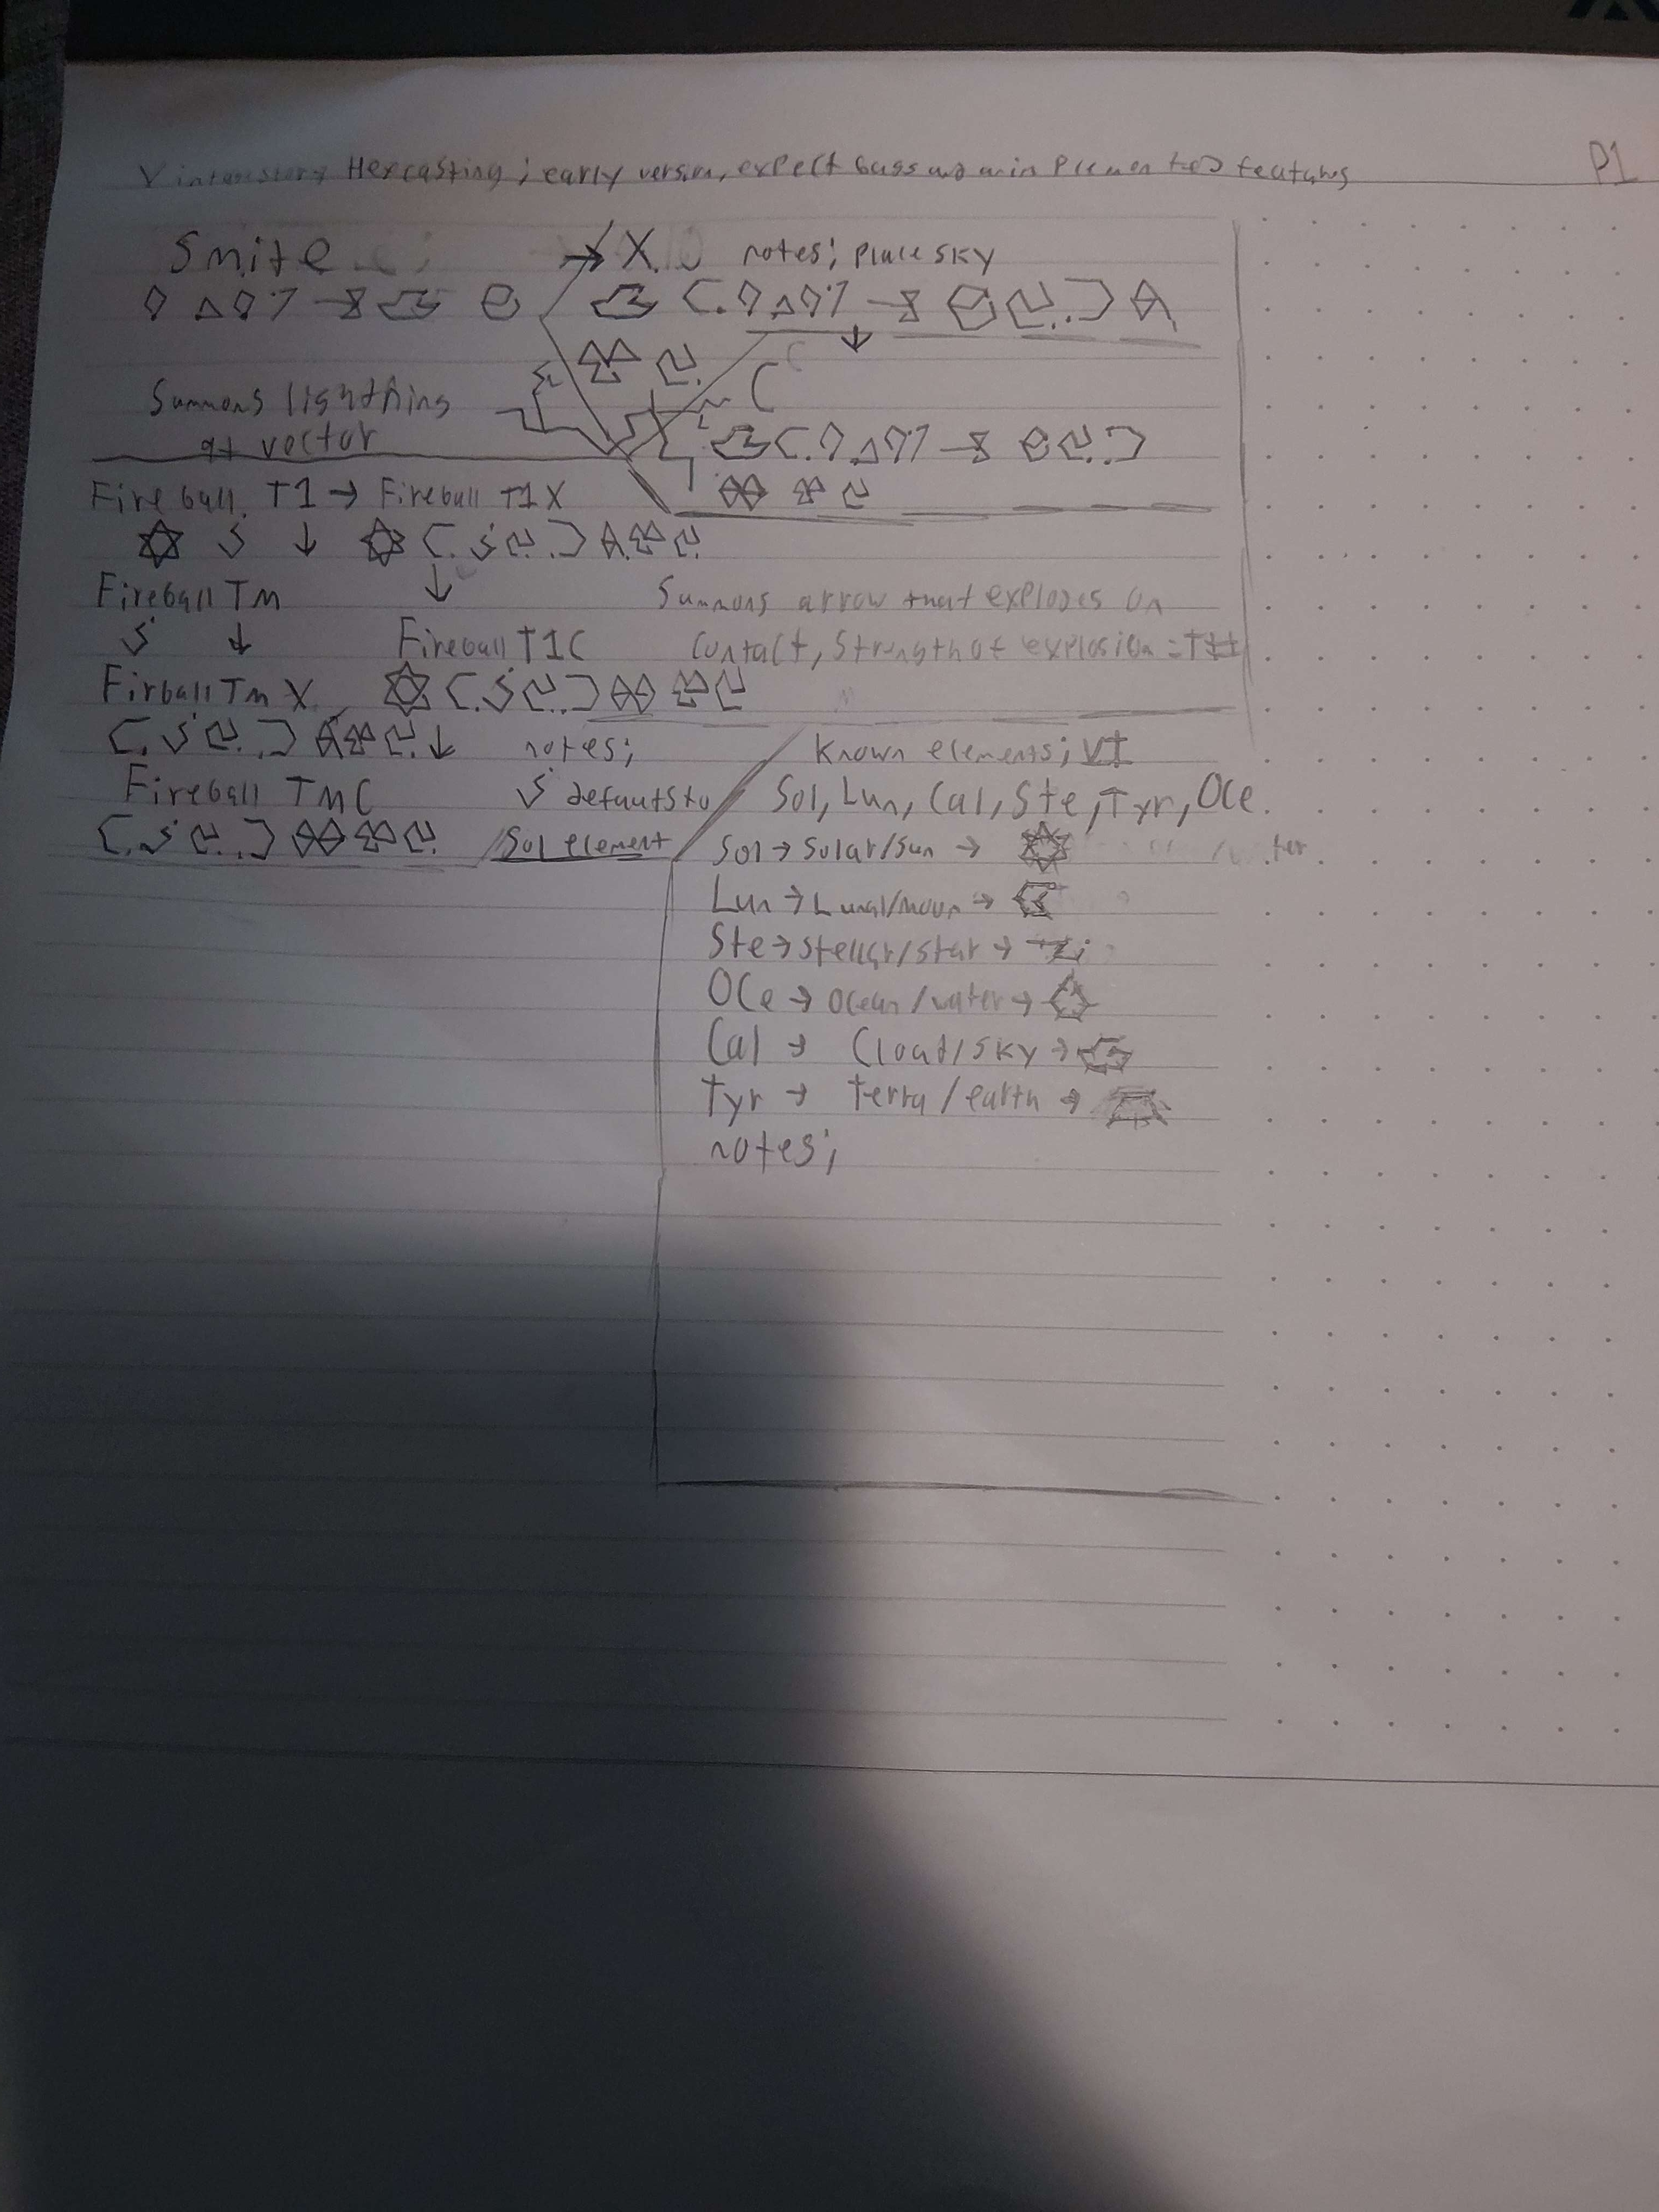 Vintagestory Hexcasting; early version, expect bugs and unimplemented features
P1
Smite → X
notes; place sky
Summons lightning
at vector
C
Fireball T1 → Fireball T1X
Fireball TM
Summons arrow that explodes on
contact, strength of explosion = T#
Fireball T1C
Firball TM X
notes;
defaults to
Sol element
Fireball TMC
Known elements; VI
Sol, Lun, Cal, Ste, Tyr, Oce
Sol → Solar/sun →
Lun → Lunal/moon →
Ste → stellar/star →
Oce → Ocean/water →
Cal → Cloud/sky →
Tyr → terra/earth →
notes;